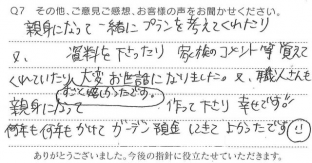 Q7 その他、ご意見ご感想、お客様の声をお聞かせください。
親身になって一緒にプランを考えてくれたり
又、資料を下さったり 家族のコメント等 覚えて
くれていたり 大変お世話になりました。又、職人さんも
ずっと嬉しかったです。
親身になって 作って下さり 幸せです!
何年も何年もかけて ガーデン預金 してきて よかったです
ありがとうございました。今後の指針に役立たせていただきます。